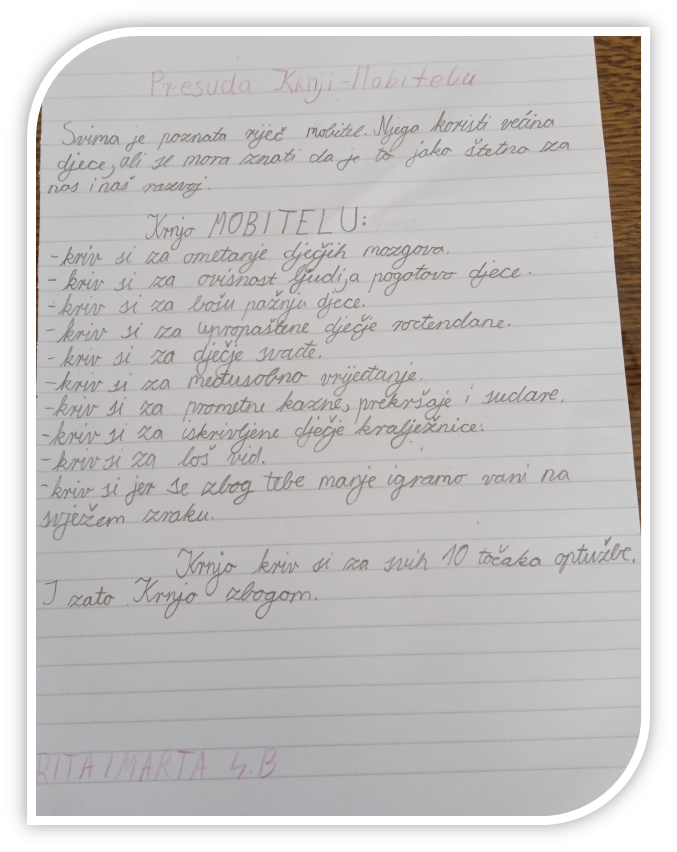 Presuda Krnji-Mobitelu
Svima je poznata riječ mobitel. Njega koristi većina
djece, ali se mora znati da je to jako štetno za
nas i naš razvoj.
Krnjo MOBITELU:
-kriv si za ometanje dječjih mozgova.
-kriv si za ovisnost ljudi, a pogotovo djece.
-kriv si za lošu pažnju djece.
-kriv si za upropaštene dječje rođendane.
-kriv si za dječje svađe.
-kriv si za međusobno vrijeđanje.
-kriv si za prometne kazne, prekršaje i sudare.
-kriv si za iskrivljene dječje kralježnice.
-kriv si za loš vid.
-kriv si jer se zbog tebe manje igramo vani na
svježem zraku.
Krnjo kriv si za svih 10 točaka optužbe.
I zato Krnjo zbogom.
RITA I MARTA 4.B